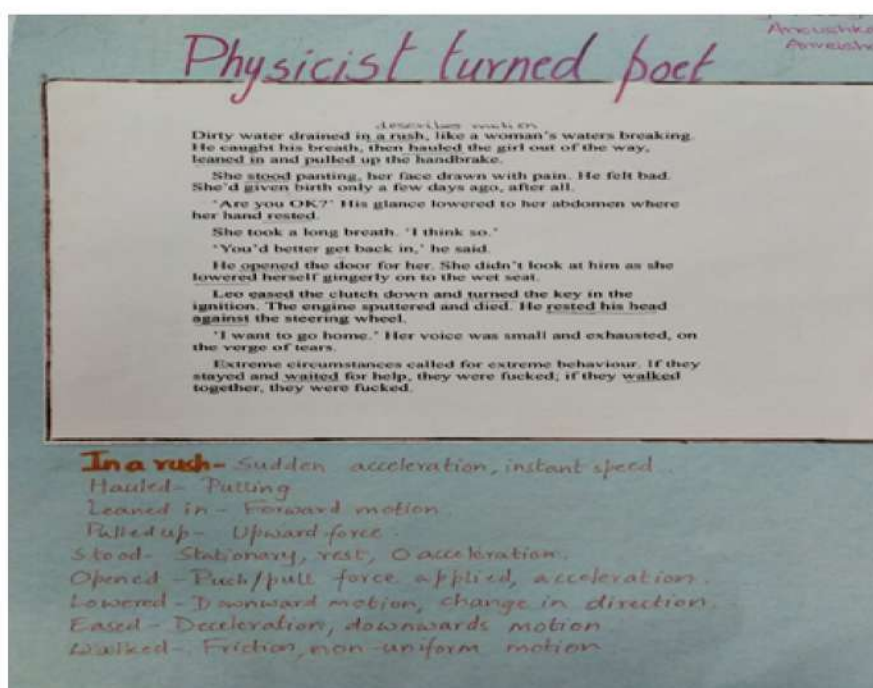 Anoushka
Anveisha
Physicist turned poet
describes motion
Dirty water drained in a rush, like a woman's waters breaking.
He caught his breath, then hauled the girl out of the way,
leaned in and pulled up the handbrake.
She stood panting, her face drawn with pain. He felt bad.
She'd given birth only a few days ago, after all.
'Are you OK?' His glance lowered to her abdomen where
her hand rested.
She took a long breath. 'I think so.'
'You'd better get back in,' he said.
He opened the door for her. She didn't look at him as she
lowered herself gingerly on to the wet seat.
Leo eased the clutch down and turned the key in the
ignition. The engine sputtered and died. He rested his head
against the steering wheel.
'I want to go home.' Her voice was small and exhausted, on
the verge of tears.
Extreme circumstances called for extreme behaviour. If they
stayed and waited for help, they were fucked; if they walked
together, they were fucked.
In a rush- Sudden acceleration, instant speed.
Hauled- Pulling
Leaned in - Forward motion.
Pulled up- Upward force.
Stood- Stationary, rest, 0 acceleration.
Opened - Push/pull force applied, acceleration.
Lowered - Downward motion, change in direction.
Eased- Deceleration, downwards motion
Walked- Friction, non-uniform motion